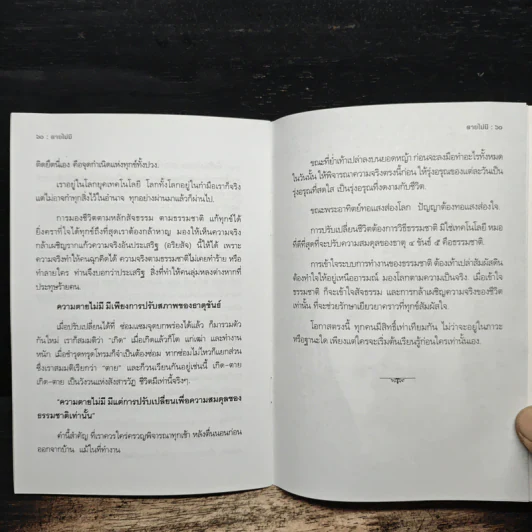 ๖๐ : ตายไม่มี
ติดยึดนี่เอง คือจุดกำเนิดแห่งทุกข์ทั้งปวง.
เราอยู่ในโลกยุคเทคโนโลยี โลกทั้งโลกอยู่ในกำมือเราก็จริง
แต่ไม่อาจทำทุกสิ่งไว้ในอำนาจ ทุกอย่างผ่านมาแล้วก็ผ่านไป.
การมองชีวิตตามหลักสัจธรรม ตามธรรมชาติ แก้ทุกข์ได้
ยิ่งคราที่ใจได้ทุกข์ถึงที่สุดเราต้องกล้าหาญ มองให้เห็นความจริง
กล้าเผชิญรากแก้วความจริงอันประเสริฐ (อริยสัจ) นี้ให้ได้ เพราะ
ความจริงทำให้คนฉุกคิดได้ ความจริงตามธรรมชาติไม่เคยทำร้าย หรือ
ทำลายใคร ท่านจึงบอกว่าประเสริฐ สิ่งที่ทำให้คนลุ่มหลงต่างหากที่
ประทุษร้ายคน.
ความตายไม่มี มีเพียงการปรับสภาพของธาตุขันธ์
เมื่อปรับเปลี่ยนได้ที่ ซ่อมแซมจุดบกพร่องได้แล้ว ก็มารวมตัว
กันใหม่ เราก็สมมติว่า "เกิด" เมื่อเกิดแล้วก็โต แก่เฒ่า และทำงาน
หนัก เมื่อชำรุดทรุดโทรมก็จำเป็นต้องซ่อม หากซ่อมไม่ไหวก็แยกส่วน
ซึ่งเราสมมติเรียกว่า "ตาย" และก็วนเวียนกันอยู่เช่นนี้ เกิด-ตาย
เกิด-ตาย เป็นวังวนแห่งสังสารวัฏ ชีวิตมีเท่านี้จริงๆ.
"ความตายไม่มี มีแต่การปรับเปลี่ยนเพื่อความสมดุลของ
ธรรมชาติเท่านั้น"
คำนี้สำคัญ ที่เราควรใคร่ครวญพิจารณาทุกเช้า หลังตื่นนอนก่อน
ออกจากบ้าน แม้ในที่ทำงาน
ตายไม่มี : ๖๑
ขณะที่ย่ำเท้าเปล่าลงบนยอดหญ้า ก่อนจะลงมือทำอะไรทั้งหมด
ในวันนั้น ให้พิจารณาความจริงตรงนี้ก่อน ให้รุ่งอรุณของแต่ละวันเป็น
รุ่งอรุณที่สดใส เป็นรุ่งอรุณที่งดงามกับชีวิต.
ขณะพระอาทิตย์ทอแสงส่องโลก ปัญญาต้องทอแสงส่องใจ.
การปรับเปลี่ยนชีวิตต้องการวิธีธรรมชาติ มิใช่เทคโนโลยี หมอ
ที่ดีที่สุดที่จะปรับความสมดุลของธาตุ ๔ ขันธ์ ๕ คือธรรมชาติ.
การเข้าใจระบบการทำงานของธรรมชาติ ต้องเท้าเปล่าสัมผัสดิน
ต้องทำใจให้อยู่เหนืออารมณ์ มองโลกตามความเป็นจริง เมื่อเข้าใจ
ธรรมชาติ ก็จะเข้าใจสัจธรรม และการกล้าเผชิญความจริงของชีวิต
เท่านั้น ที่จะช่วยรักษาเยียวยาคราวที่ทุกข์สัมผัสใจ.
โอกาสตรงนี้ ทุกคนมีสิทธิ์เท่าเทียมกัน ไม่ว่าจะอยู่ในภาวะ
หรือฐานะใด เพียงแต่ใครจะเริ่มต้นเรียนรู้ก่อนใครเท่านั้นเอง.